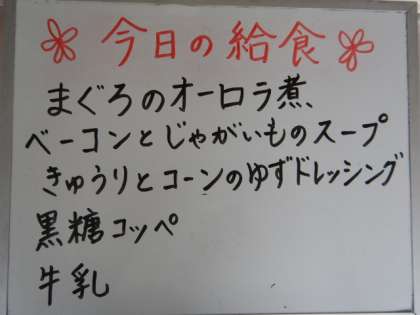 今日の給食
まぐろのオーロラ煮
ベーコンとじゃがいものスープ
きゅうりとコーンのゆずドレッシング
黒糖コッペ
牛乳